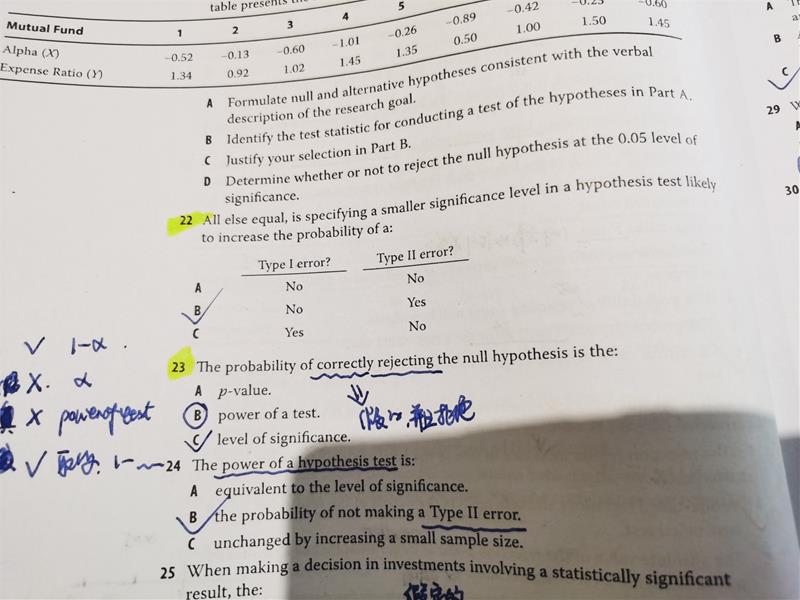 table presents the
Mutual Fund 1 2 3 4 5
Alpha (X) −0.52 −0.13 −0.60 −1.01 −0.26 −0.89 −0.42 −0.23 −0.60
Expense Ratio (Y) 1.34 0.92 1.02 1.45 1.35 0.50 1.00 1.50 1.45
A Formulate null and alternative hypotheses consistent with the verbal
description of the research goal.
B Identify the test statistic for conducting a test of the hypotheses in Part A.
C Justify your selection in Part B.
D Determine whether or not to reject the null hypothesis at the 0.05 level of
significance.
22 All else equal, is specifying a smaller significance level in a hypothesis test likely
to increase the probability of a:
Type I error? Type II error?
A No No
B No Yes
C Yes No
23 The probability of correctly rejecting the null hypothesis is the:
A p-value.
B power of a test.
C level of significance.
24 The power of a hypothesis test is:
A equivalent to the level of significance.
B the probability of not making a Type II error.
C unchanged by increasing a small sample size.
25 When making a decision in investments involving a statistically significant
result, the:
√ 1-α.
X. α
X power of test
√ 1-
假的
A
B
C
29
30